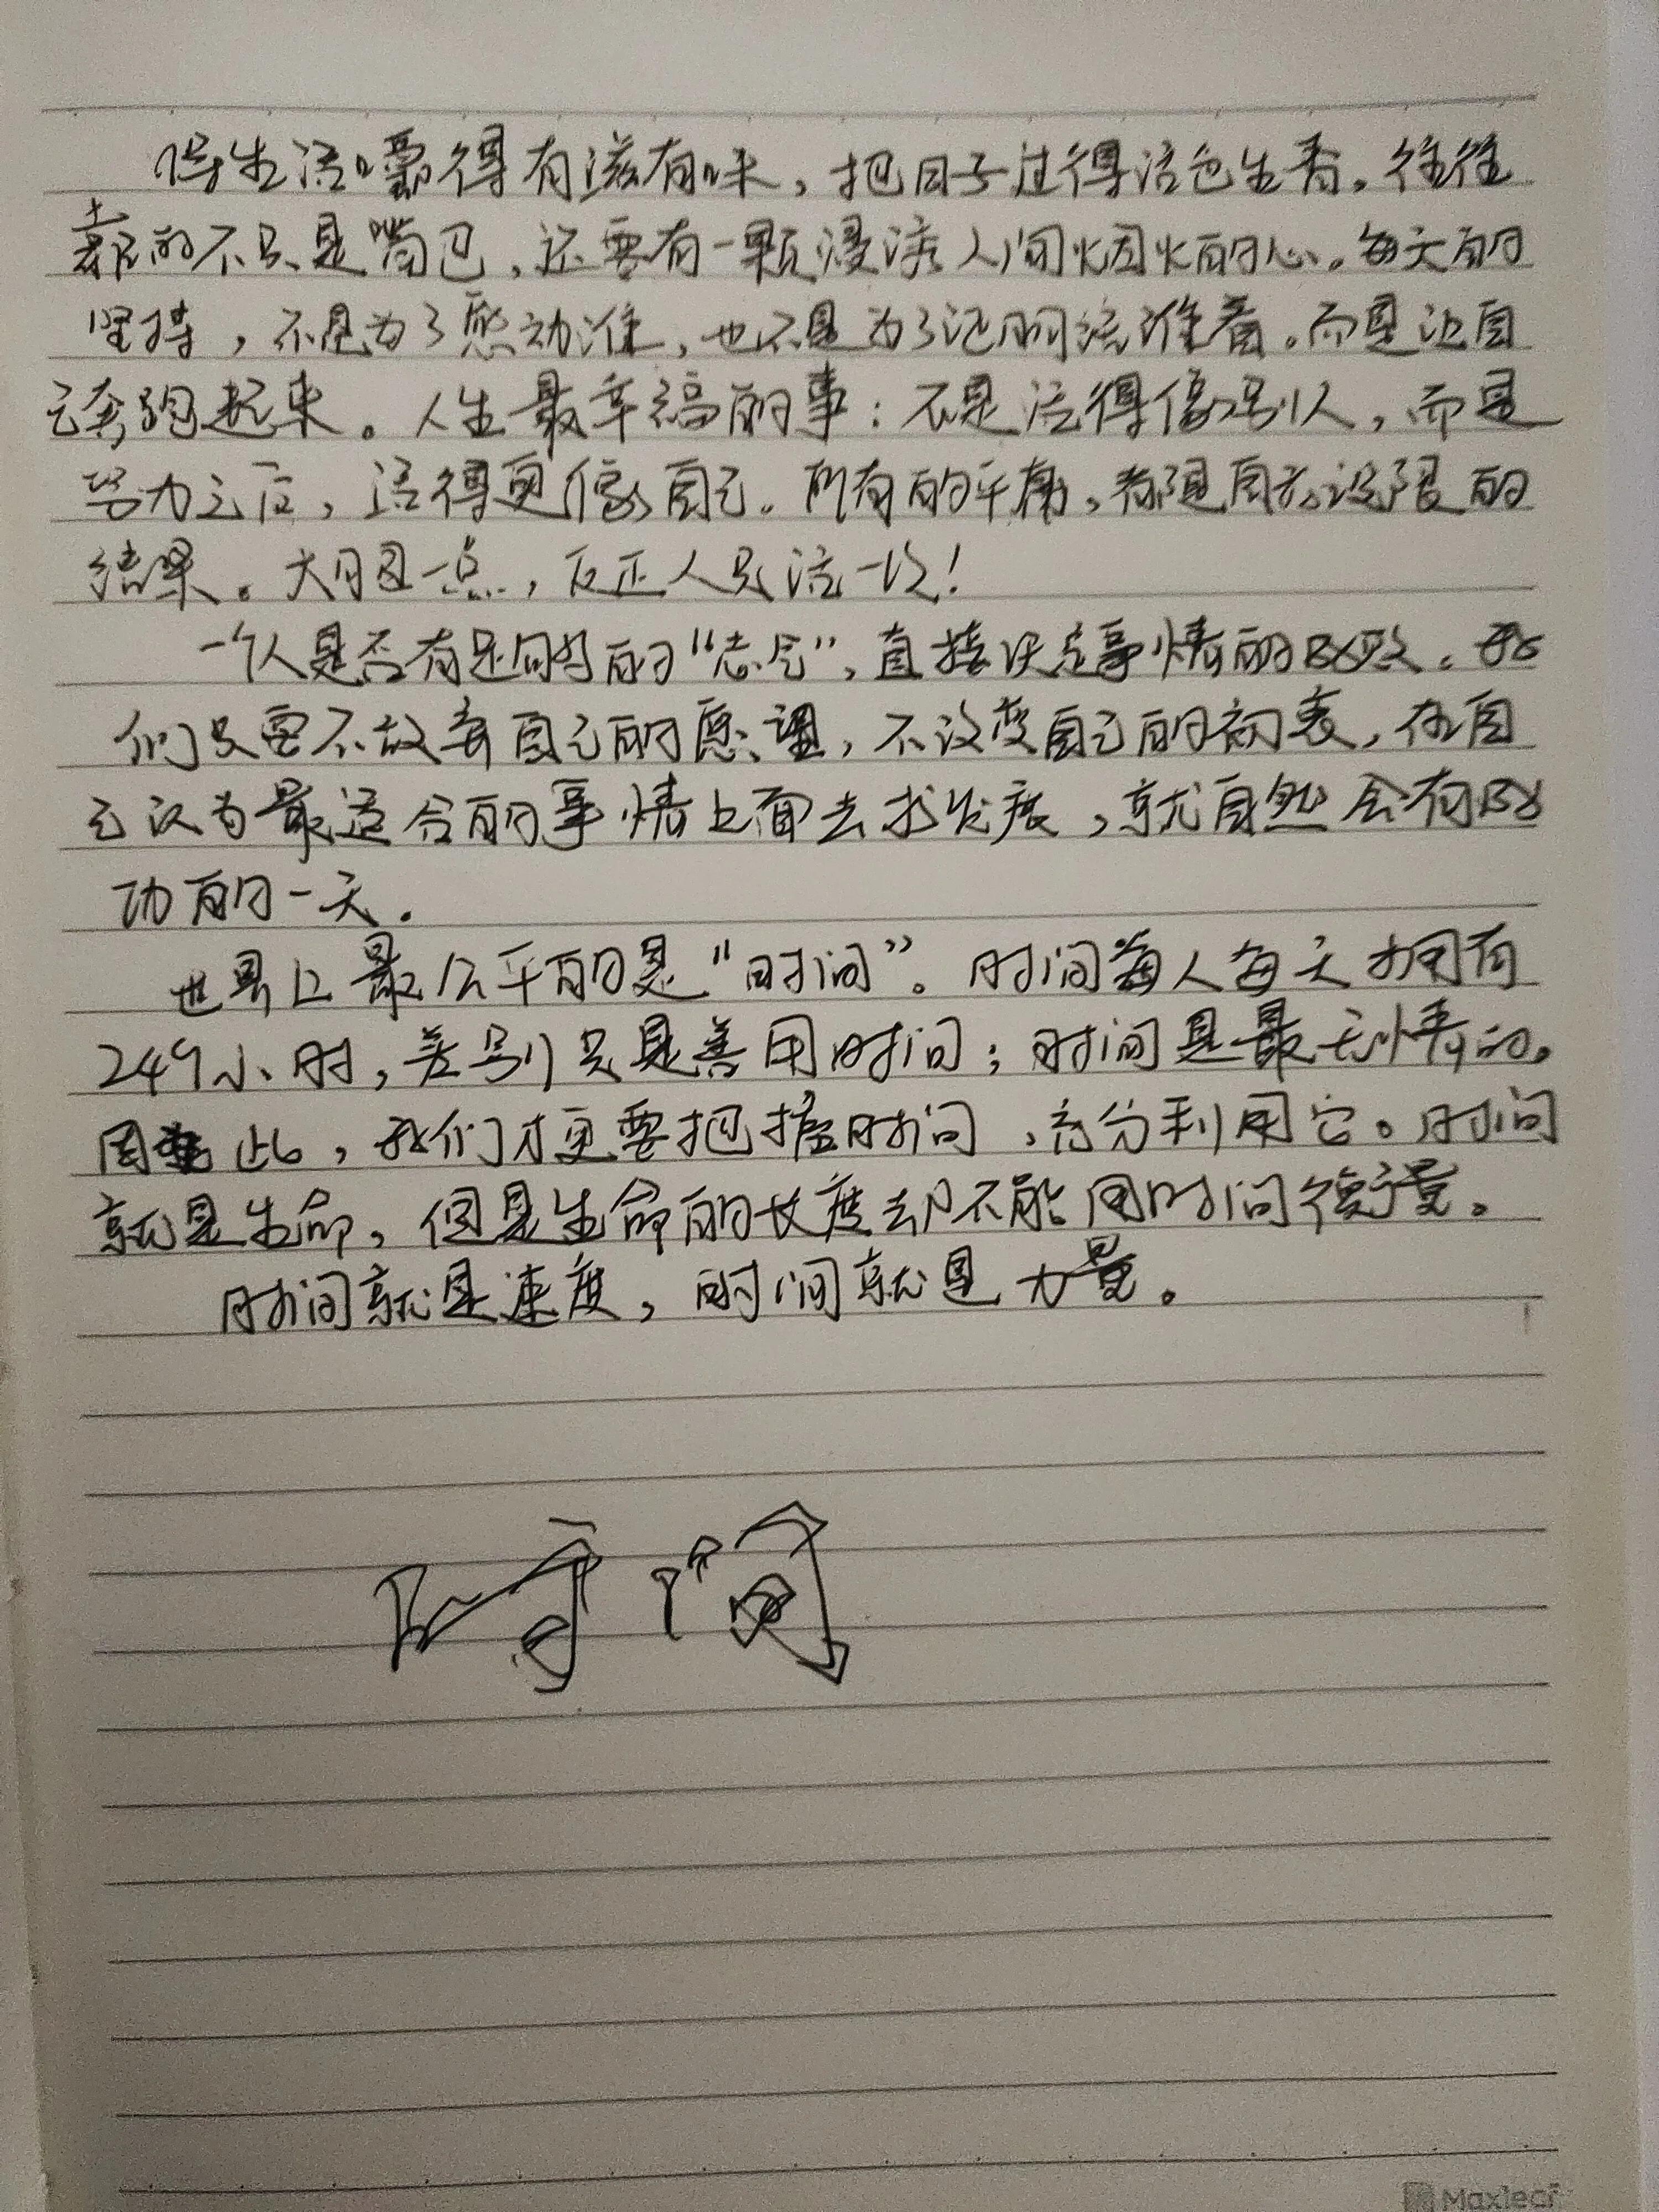 得生活嚼得有滋有味，把日子过得活色生香，往往
靠的不只是嘴巴，还要有一颗浸渍人间烟火的心。每天的
坚持，不是为了感动谁，也不是为了证明给谁看。而是让自
己奔跑起来。人生最幸福的事：不是活得像别人，而是
努力之后，活得更像自己。所有的平庸，都是自我设限的
结果。大胆一点，反正人只活一次！
一个人是否有足够的“志气”，直接决定事情的成败。我
们只要不放弃自己的愿望，不改变自己的初衷，在自
己认为最适合的事情上面去求发展，就自然会有成
功的一天。
世界上最公平的是“时间”。时间每人每天拥有
24个小时，差别只是善用时间；时间是最无情的。
因此，我们才更要把握时间，充分利用它。时间
就是生命，但是生命的长度却不能用时间衡量。
时间就是速度，时间就是力量。
时间
Maxleaf